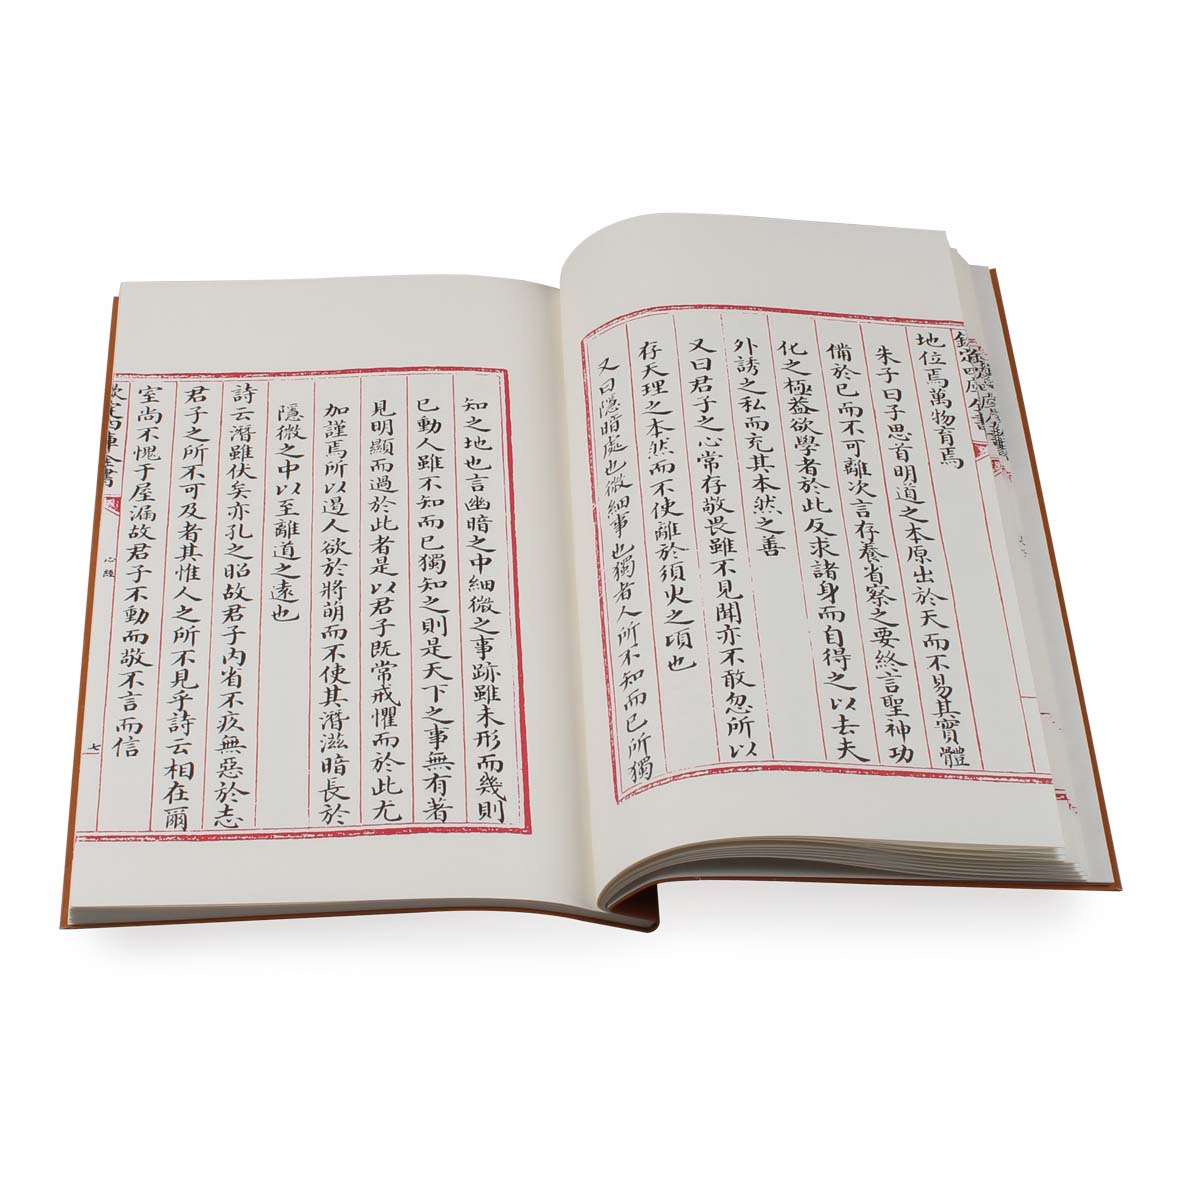 欽定四庫全書
地位焉萬物育焉
朱子曰子思首明道之本原出於天而不易其實體
備於已而不可離次言存養省察之要終言聖神功
化之極葢欲學者於此反求諸身而自得之以去夫
外誘之私而充其本然之善
又曰君子之心常存敬畏雖不見聞亦不敢忽所以
存天理之本然而不使離於須臾之頃也
又曰隱暗處也微細事也獨者人所不知而已所獨
知之地也言幽暗之中細微之事跡雖未形而幾則
已動人雖不知而已獨知之則是天下之事無有著
見明顯而過於此者是以君子既常戒懼而於此尤
加謹焉所以遏人欲於將萌而不使其潛滋暗長於
隱微之中以至離道之遠也
詩云潛雖伏矣亦孔之昭故君子內省不疚無惡於志
君子之所不可及者其惟人之所不見乎詩云相在爾
室尚不愧于屋漏故君子不動而敬不言而信
欽定四庫全書
心經
七